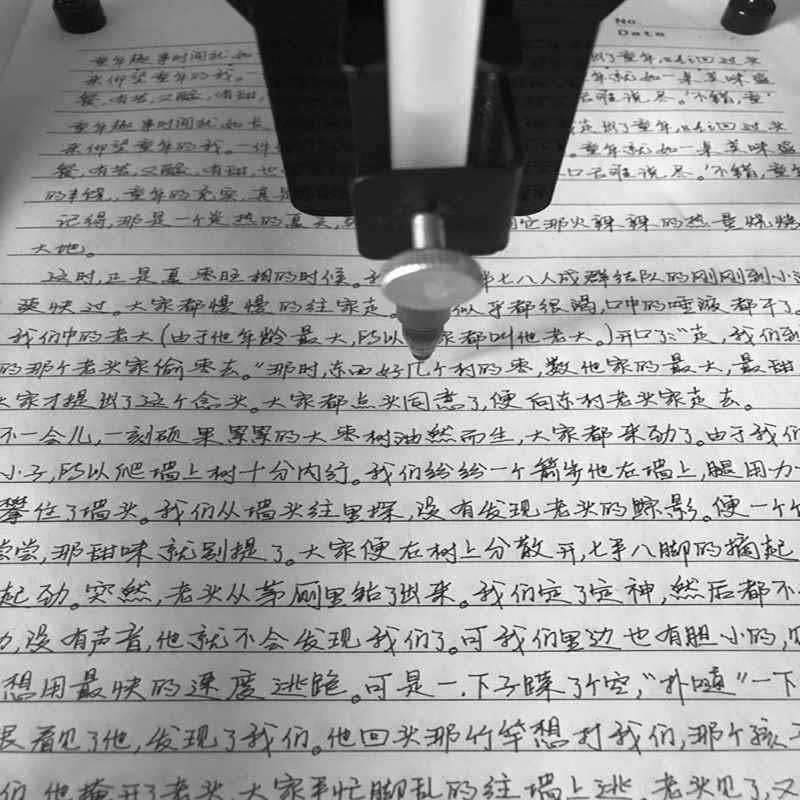 No.
Date
童年趣事时间就如 到了童年,以之回过头
来仰望童年的我。一 童年就如一桌美味盛
餐,有苦,又酸,有甜, 口舌难说尽。不错,童
童年趣事时间就如长 走到了童年,以之回过头
来仰望童年的我。一件 。童年就如一桌美味盛
餐,有苦,又酸,有甜,也 口舌难说尽。不错,童年
的丰锦,童年的充实,真是
记得,那是一个炎热的夏天, 它那火辣辣的热量烧烤
大地。
这时,正是夏枣旺相的时候。 伴七八人成群结队的刚刚到小河
耍快过。大家都慢慢的往家走。 似乎都很渴,口中的唾液都干了。
我们中的老大(由于他年龄最大,所以 家都叫他老大。)开口了:“走,我们到
的那个老头家偷枣去。”那时,东西好几个村的枣,数他家的最大,最甜
大家才提出了这个念头。大家都点头同意了,便向东村老头家走去。
不一会儿,一刻硕果累累的大枣树油然而生,大家都来劲了。由于我们
小子,所以爬墙上树十分内行。我们纷纷一个箭步他在墙上,腿用力
攀住了墙头。我们从墙头往里探,没有发现老头的踪影。便一个个
尝尝,那甜味就别提了。大家便在树上分散开,七手八脚的摘起
起劲。突然,老头从茅厕里钻了出来。我们定了定神,然后都不
动,没有声音,他就不会发现我们了。可我们里边也有胆小的,
想用最快的速度逃跑。可是一下子踩了个空,“扑嗵”一下
眼看见了他,发现了我们。他回头那竹竿想打我们,那个孩
们,他掩开了老头,大家手忙脚乱的往墙上逃,老头见了,又